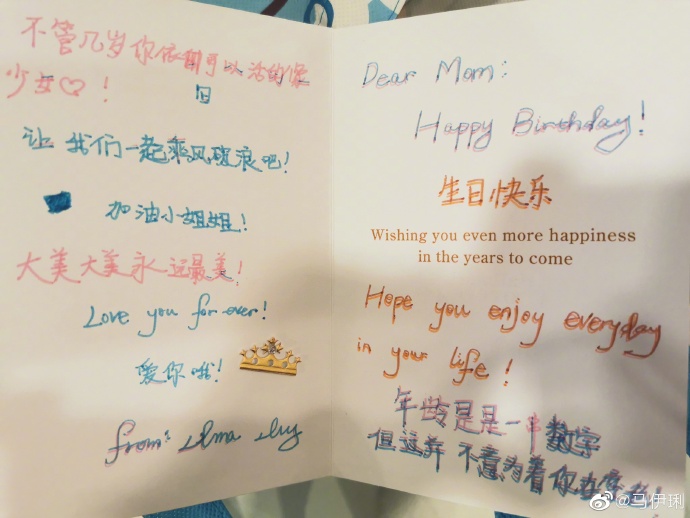 不管几岁你依旧可以活的像
少女♡!
旧
让我们一起乘风破浪吧!
加油小姐姐!
大美大美永远最美!
Love you for ever!
爱你哦!
from: Alma Ivy
Dear Mom:
Happy Birthday!
生日快乐
Wishing you even more happiness
in the years to come
Hope you enjoy everyday
in your life!
年龄是是一串数字
但这并不意为着你
@马伊琍